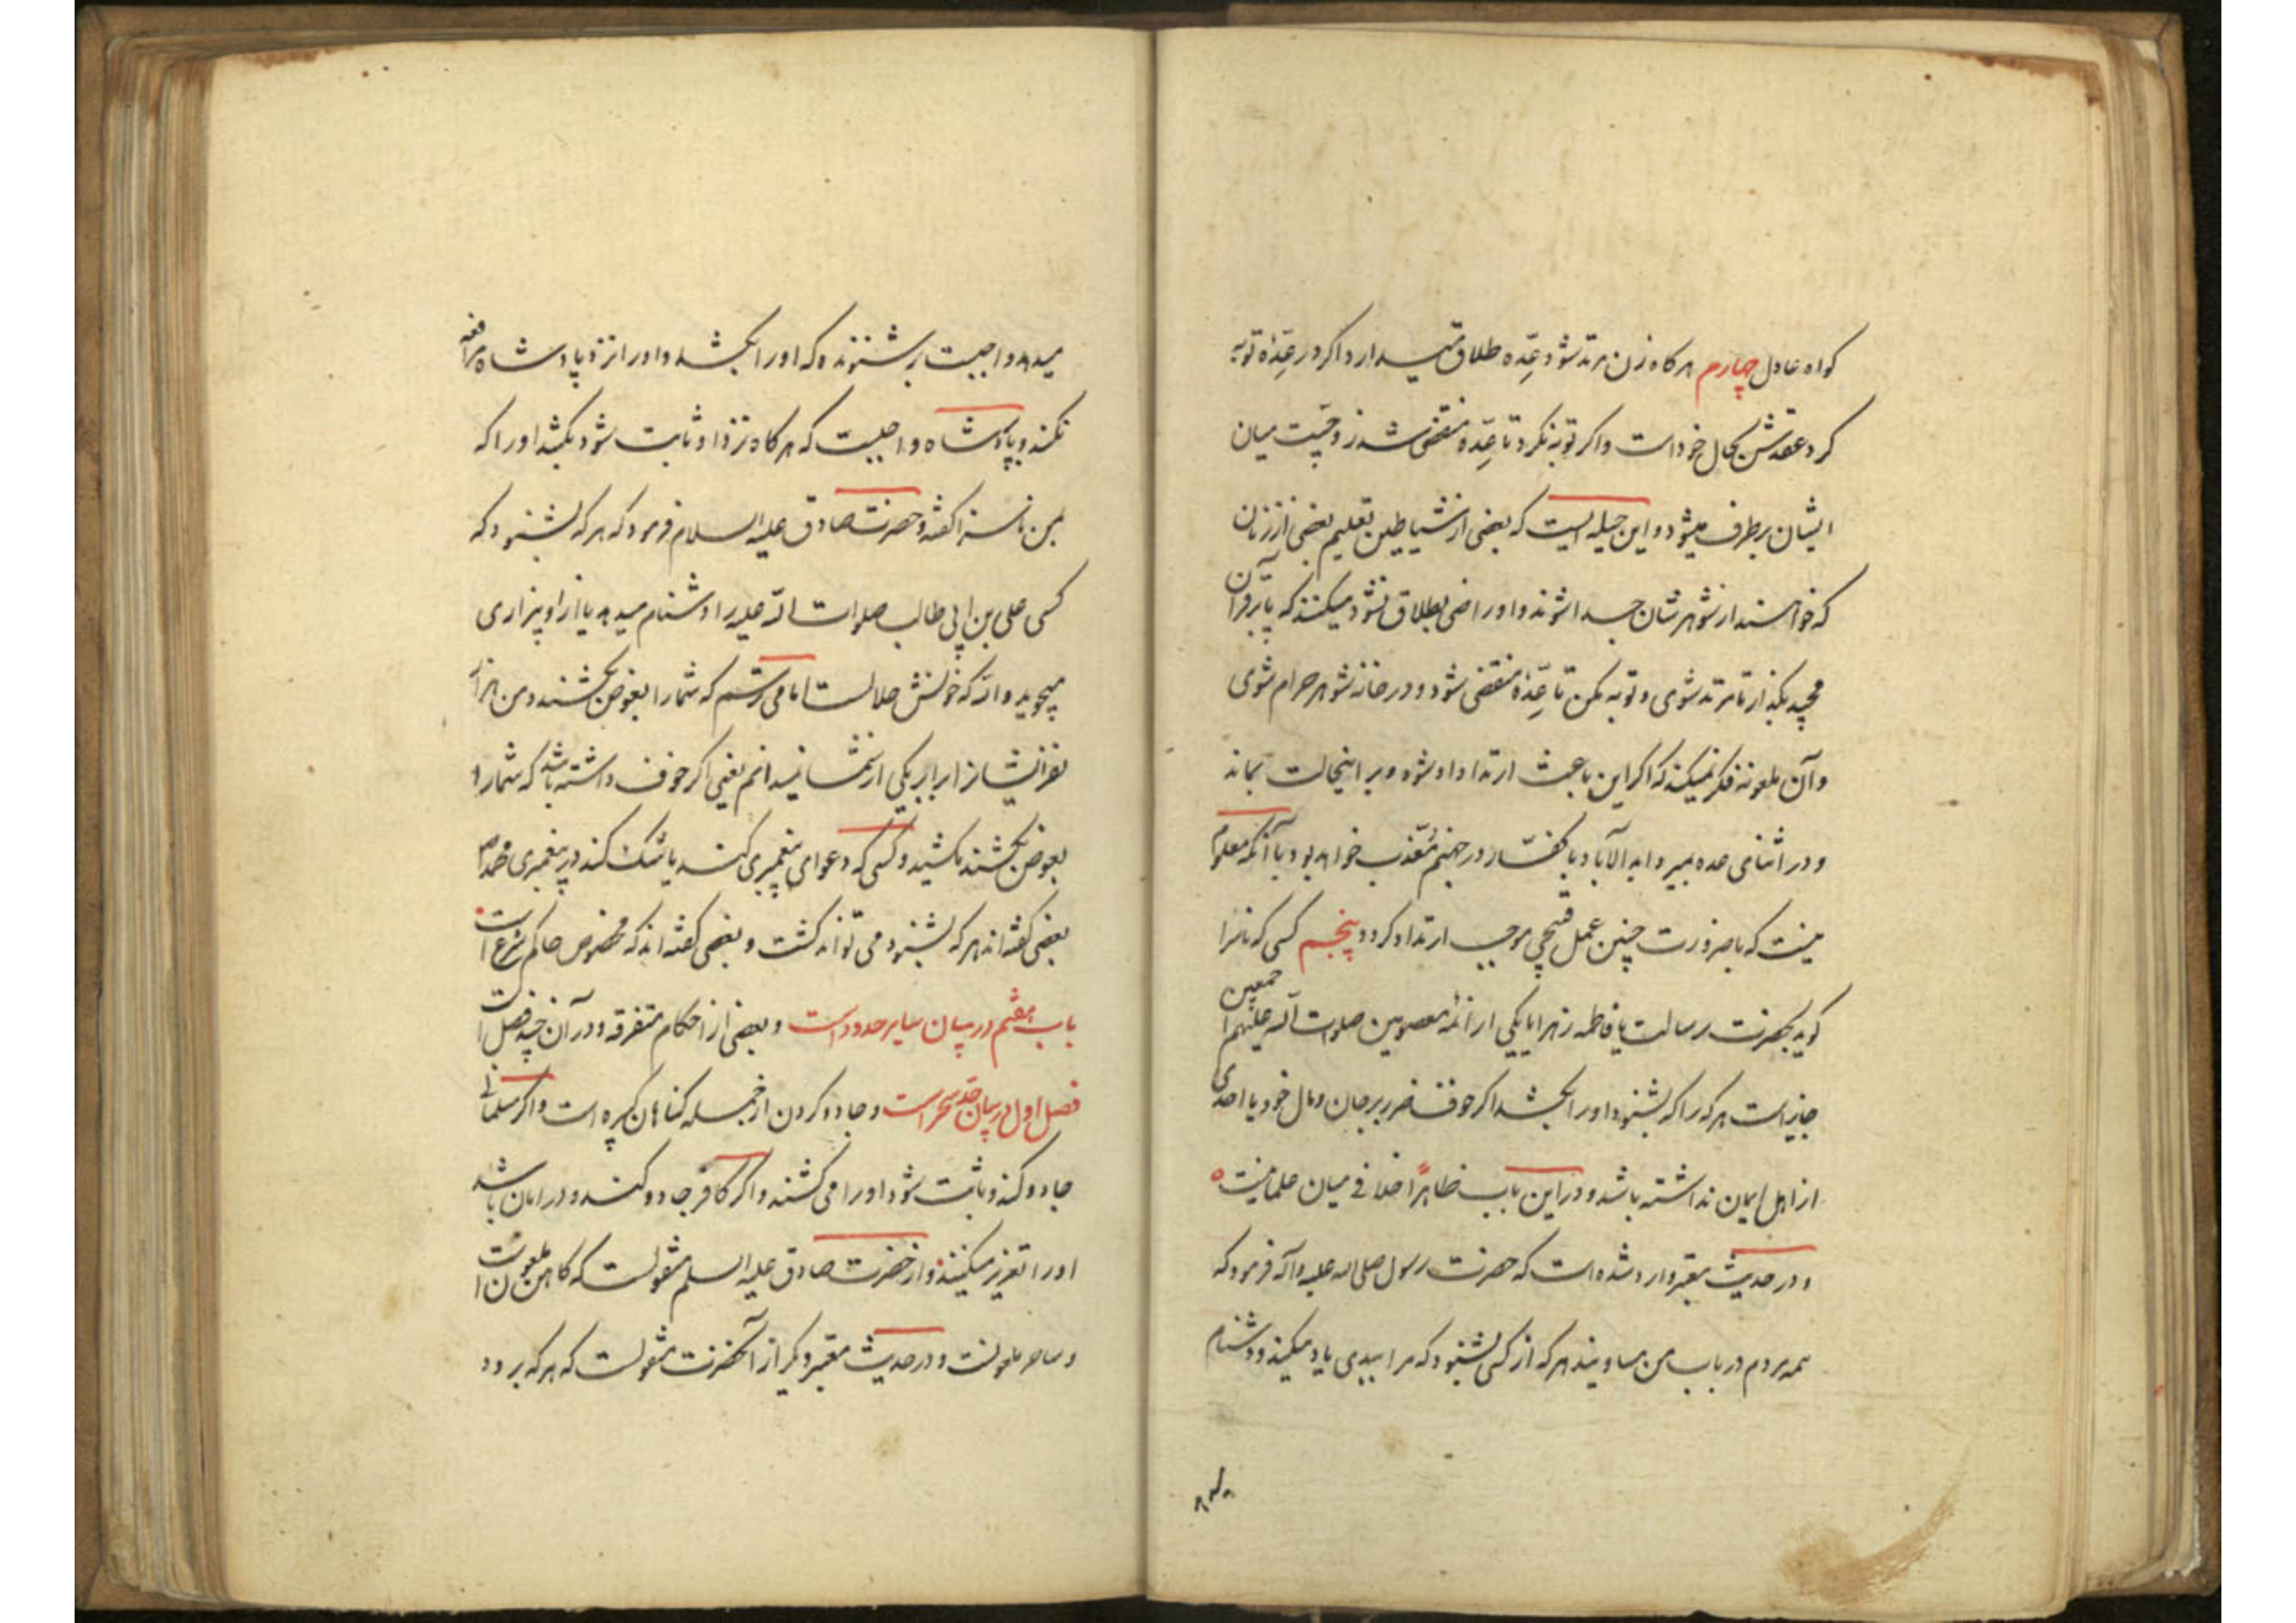 کواه عادل چهارم هرکاه زن مرتد شود عِدّه طلاق میدارد و اکر در عِدّه توبه
کرد عقدش بحال خود است و اکر توبه نکرد تا عِدّه منقضی شد زوجیّت میان
ایشان برطرف میشود و این حیله ایست که بعضی از شیاطین تعلیم بعضی از زنان
که خواهند از شوهرشان جدا شوند و او راضی بطلاق نشود میکنند که پا بر قرآن
مجید بکذار تا مرتد شوی و توبه مکن تا عِدّه منقضی شود و در خانه شوهر حرام شوی
و آن ملعونه فکر نمیکند که اکر این باعث ارتداد او شود و بر اینحالت بماند
و در اثنای عده بمیرد ابد الآباد با کفّار در جهنم مُعَذب خواهد بود با آنکه معلوم
نیست که باصرورت چنین عمل قبیحی موجب ارتداد کردد پنجم کسی که ناسزا
کوید بحضرت رسالت یا فاطمه زهرا یا یکی از ائمه معصومین صلوات الله علیهم اجمعین
جایز است هرکه را که بشنود او را بکشد اکر خوف ضرر بر جان و مال خود یا احدی
از اهل ایمان نداشته باشد و در این باب ظاهراً خلافی میان علما نیست
و در حدیث معتبر وارد شده است که حضرت رسول صلی الله علیه و آله فرمود که
همه مردم در باب من مساویند هرکه از کسی بشنود که مرا ببدی یاد میکند و دشنام
میدهد
میدهد واجبست بر شنونده که او را بکشد و او را نزد پادشاه مرافعه
نکند و پادشاه واجبست که هرکاه نزد او ثابت شود بکشد او را که
بمن ناسزا کفته و حضرت صادق علیه السلام فرمود که هرکه بشنود که
کسی علی بن ابی طالب صلوات الله علیه را دشنام میدهد یا از او بیزاری
میجوید والله که خونش حلالست اما می ترسم که شما را بعوض بکشند و من هزار
نفر ایشان را برابر یکی از شما نمیدانم یعنی اکر خوف داشته باشد که شما را
بعوض بکشند مکشید و کسی که دعوای پیغمبری کند یا شک کند در پیغمبری محمد ص
بعضی کفته اند هرکه بشنود می تواند کشت و بعضی کفته اند که مخصوص حاکم شرع است
باب هفتم در بیان سایر حدود است و بعضی از احکام متفرقه و در آن چند فصل است
فصل اول در بیان حدّ سحر است و جادو کردن از جمله کناهان کبیره است و اکر مسلمانی
جادو کند و ثابت شود او را می کشند و اکر کافر جادو کند و در امان باشد
او را تعزیر میکنند و از حضرت صادق علیه السلم منقولست که کاهن ملعون است
و ساحر ملعونست و در حدیث معتبر دیکر از آنحضرت منقولست که هرکه برود